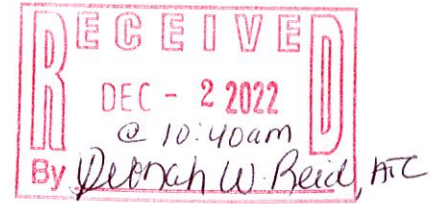 RECEIVED
DEC - 2 2022
@ 10:40am
By Deborah W. Reid, ATC